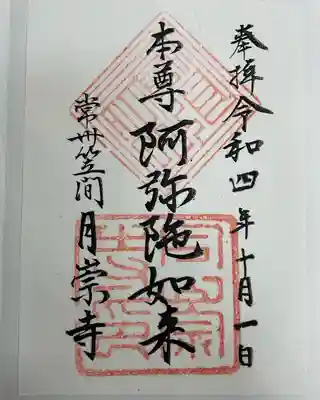 奉拝 令和四年十月一日
本尊 阿弥陀如来
常州笠間 月崇寺